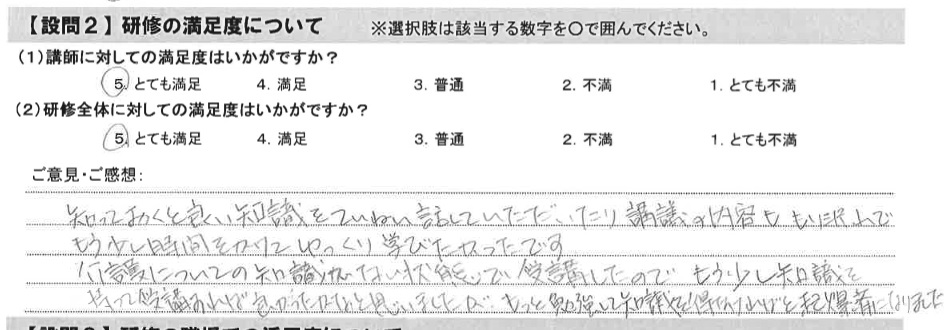 【設問2】研修の満足度について ※選択肢は該当する数字を〇で囲んでください。
(1)講師に対しての満足度はいかがですか？
5. とても満足 4. 満足 3. 普通 2. 不満 1. とても不満
(2)研修全体に対しての満足度はいかがですか？
5. とても満足 4. 満足 3. 普通 2. 不満 1. とても不満
ご意見・ご感想:
知っておくと良い知識をていねい話していただいたり 講議の内容ももり沢山で
もう少し時間をかけてゆっくり学びたかったです
介護についての知識がない状態で 受講したので もう少し知識を
持って受講すれば 良かったかなと思いましたが もっと勉強して知識を得なければと起爆着になりました